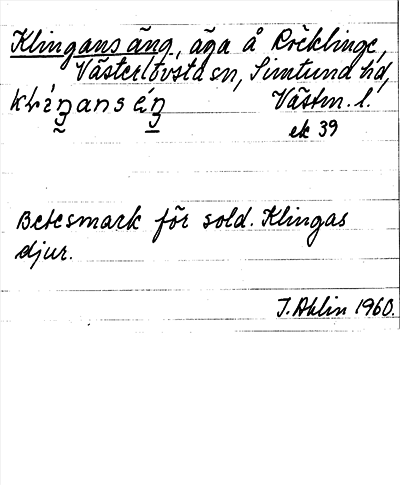 Klingans äng, äga å Röcklinge,
Västerlövsta sn, Simtuna hd,
Västm. l.
ek 39
Betesmark för sold. Klingas
djur.
I. Ahlin 1960.